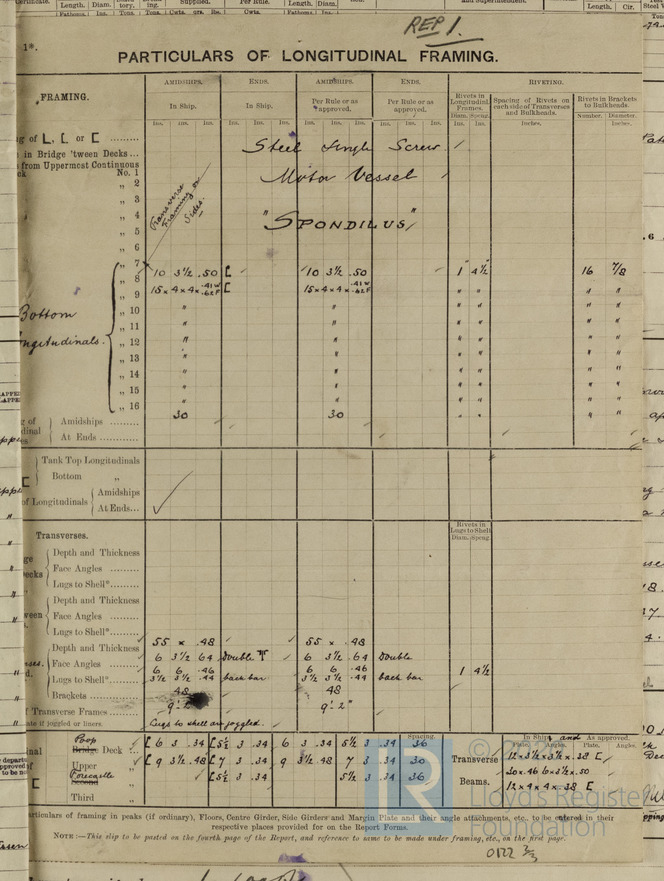 Length. Diam.
Supplied.
Per Rule.
Length. Diam.
and Superintendent.
Length. Cir.
Fathoms. Ins. Tons. Cwts. qrs. lbs. Cwts. Fathoms. Ins.
REP 1.
1*.
PARTICULARS OF LONGITUDINAL FRAMING.
FRAMING.
AMIDSHIPS. ENDS. AMIDSHIPS. ENDS. RIVETING.
In Ship. In Ship. Per Rule or as approved. Per Rule or as approved.
Rivets in Longitudinal Frames. Spacing of Rivets on each side of Transverses and Bulkheads. Rivets in Brackets to Bulkheads.
Ins. Ins. Ins. Ins. Ins. Ins. Ins. Ins. Ins. Ins. Ins. Ins. Diam. Spcng. Ins. Ins. Inches. Number. Diameter. Inches.
Steel Single Screw
in Bridge 'tween Decks...
from Uppermost Continuous
No. 1
Motor Vessel
„ 2
„ 3
Transverse Framing on Sides.
„ 4
"SPONDILUS"
„ 5
„ 6
„ 7
10 3½ .50 [ 10 3½ .50 1" 4½ 16 7/8
„ 8
15×4×4×.41W .62F [ 15×4×4×.41W .62F " " " "
„ 9
Bottom
„ 10 " " " " " "
„ 11 " " " " " "
Longitudinals.
„ 12 " " " " " "
„ 13 " " " " " "
„ 14 " " " " " "
„ 15 " " " " " "
„ 16 " " " " " "
30 30 " " " "
Amidships
At Ends
Tank Top Longitudinals
Bottom „
of Longitudinals Amidships
At Ends...
Transverses.
Rivets in Lugs to Shell
Diam. Spcng.
Depth and Thickness
Face Angles
Lugs to Shell*
Depth and Thickness
Face Angles
Lugs to Shell*
55 × .48 55 × .48
Depth and Thickness
6 3½ .64 Double 6 3½ .64 Double
Face Angles
6 6 .46 6 6 .46
Lugs to Shell*
3½ 3½ .44 back bar 3½ 3½ .44 back bar 1 4½
Brackets
48 48
Transverse Frames
9'.2" 9'.2"
if joggled or liners.
Lugs to shell are joggled.
Spacing. In Ship. and As approved.
Plate. Angles. Plate. Angles.
Poop
Bridge Deck [ 6 3 .34 [ 5½ 3 .34 6 3 .34 5½ 3 .34 36 12×3½×3½×.38 [
Upper „ [ 9 3½ .48 [ 7 3 .34 9 3½ .48 7 3 .34 30 Transverse 20×.46 6×3½×.50
Forecastle
Second „ [ 5½ 3 .34 5½ 3 .34 36 Beams. 12×4×4×.38 [
Third „
© Lloyd's Register Foundation
LR
particulars of framing in peaks (if ordinary), Floors, Centre Girder, Side Girders and Margin Plate and their angle attachments, etc., to be entered in their
respective places provided for on the Report Forms.
NOTE:—This slip to be posted on the fourth page of the Report, and reference to same to be made under framing, etc., on the first page.
0122 2/3